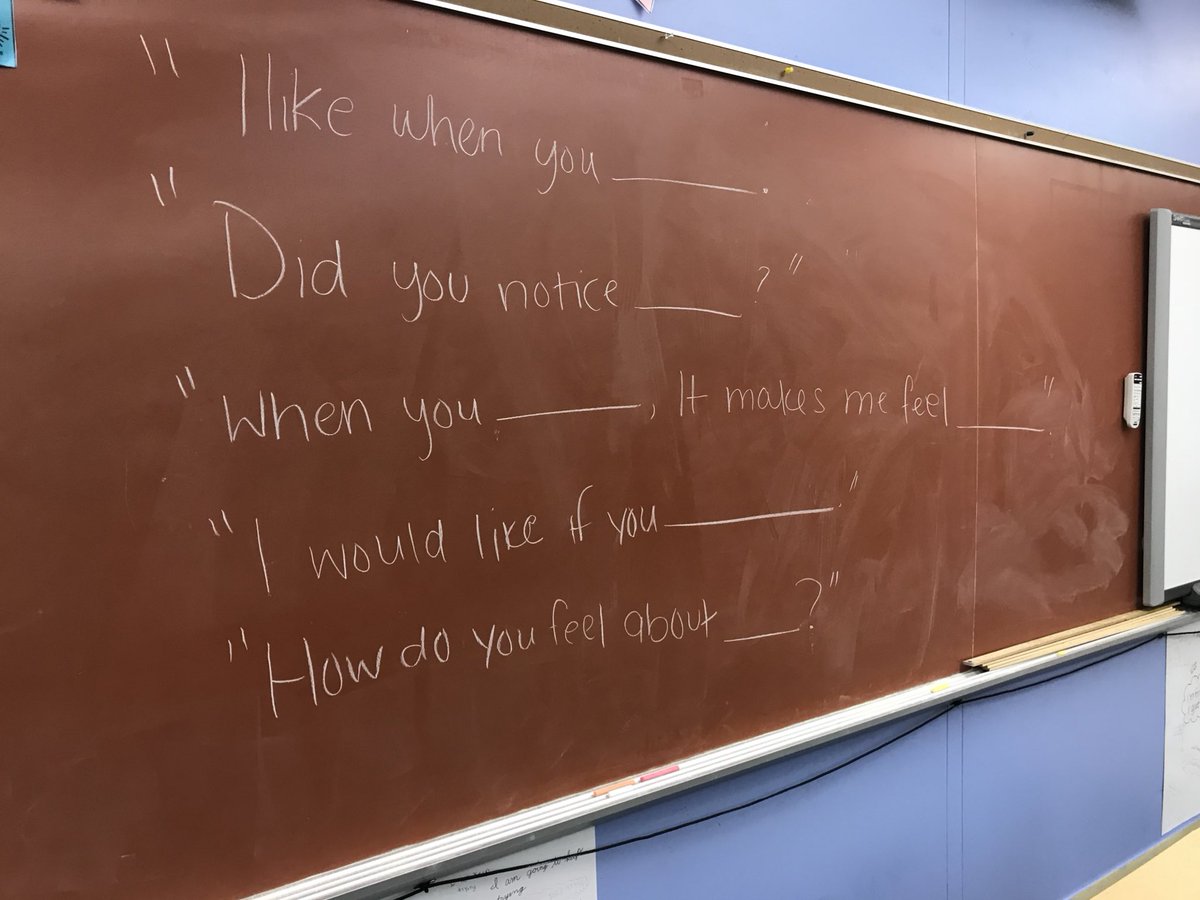 "I like when you ______.
"Did you notice _____?"
"When you _______, It makes me feel _____."
"I would like if you ________."
"How do you feel about ____?"
I am going to